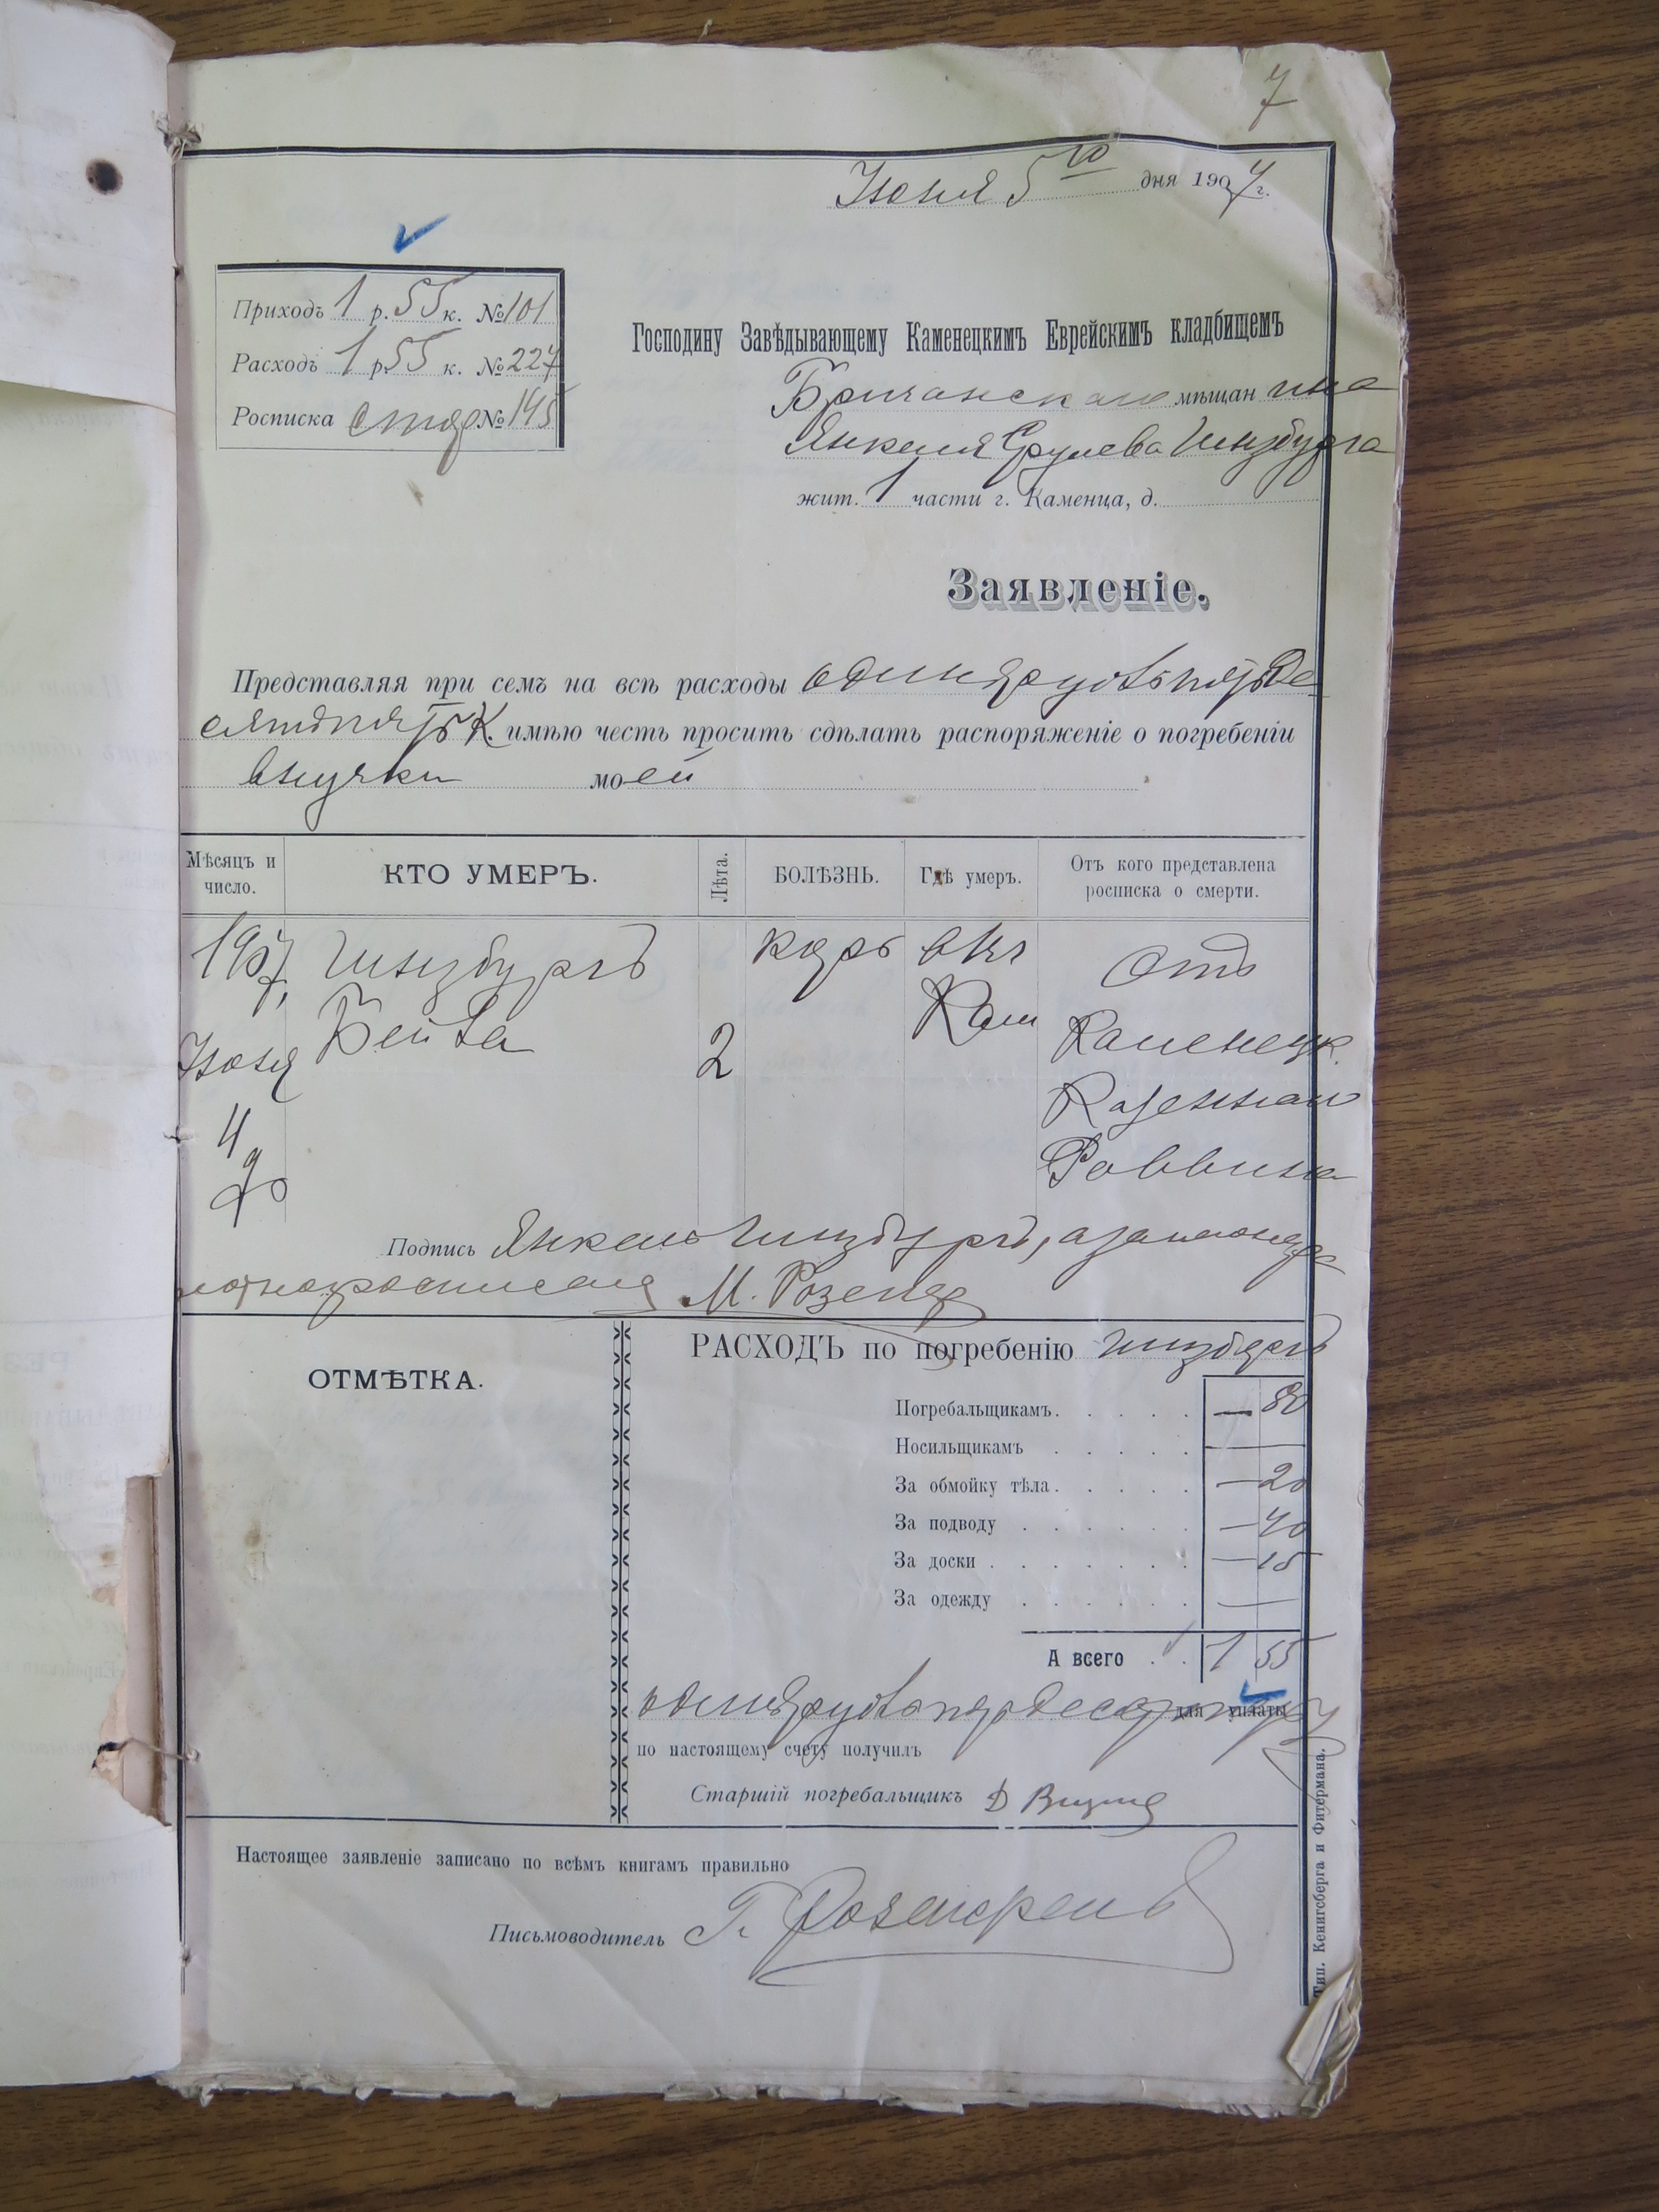 7
Июня 5го дня 1907 г.
Приходъ 1 р. 55 к. №101
Расходъ 1 р. 55 к. №227
Росписка №145
Господину Завѣдывающему Каменецкимъ Еврейскимъ кладбищемъ
Бричанскаго мѣщанина
Янкеля Срулева Гинзбурга
жит. 1 части г. Каменца, д.
Заявленіе.
Представляя при семъ на всѣ расходы одинъ рубль пятьде
сятъ пять К. имѣю честь просить сдѣлать распоряженіе о погребеніи
внучки моей
Мѣсяцъ и число. КТО УМЕРЪ. Лѣта. БОЛѢЗНЬ. Гдѣ умеръ. Отъ кого представлена росписка о смерти.
1907, Гинзбургъ корь въ г Отъ
Бейла Кам Каменецк.
Июня 2 Казеннаго
4 Раввина
Подпись Янкель Гинзбургъ, а за негр
М. Розенб
ОТМѢТКА.
РАСХОДЪ по погребенію Гинзбургъ
Погребальщикамъ. — 80
Носильщикамъ —
За обмойку тѣла. — 20
За подводу — 40
За доски — 15
За одежду —
А всего 1 55
одинъ рубль пятьдесятъ пять для уплаты
по настоящему счету получилъ
Старшій погребальщикъ Д
Настоящее заявленіе записано по всѣмъ книгамъ правильно
Письмоводитель Г.
Тип. Кенигсберга и Фитермана.